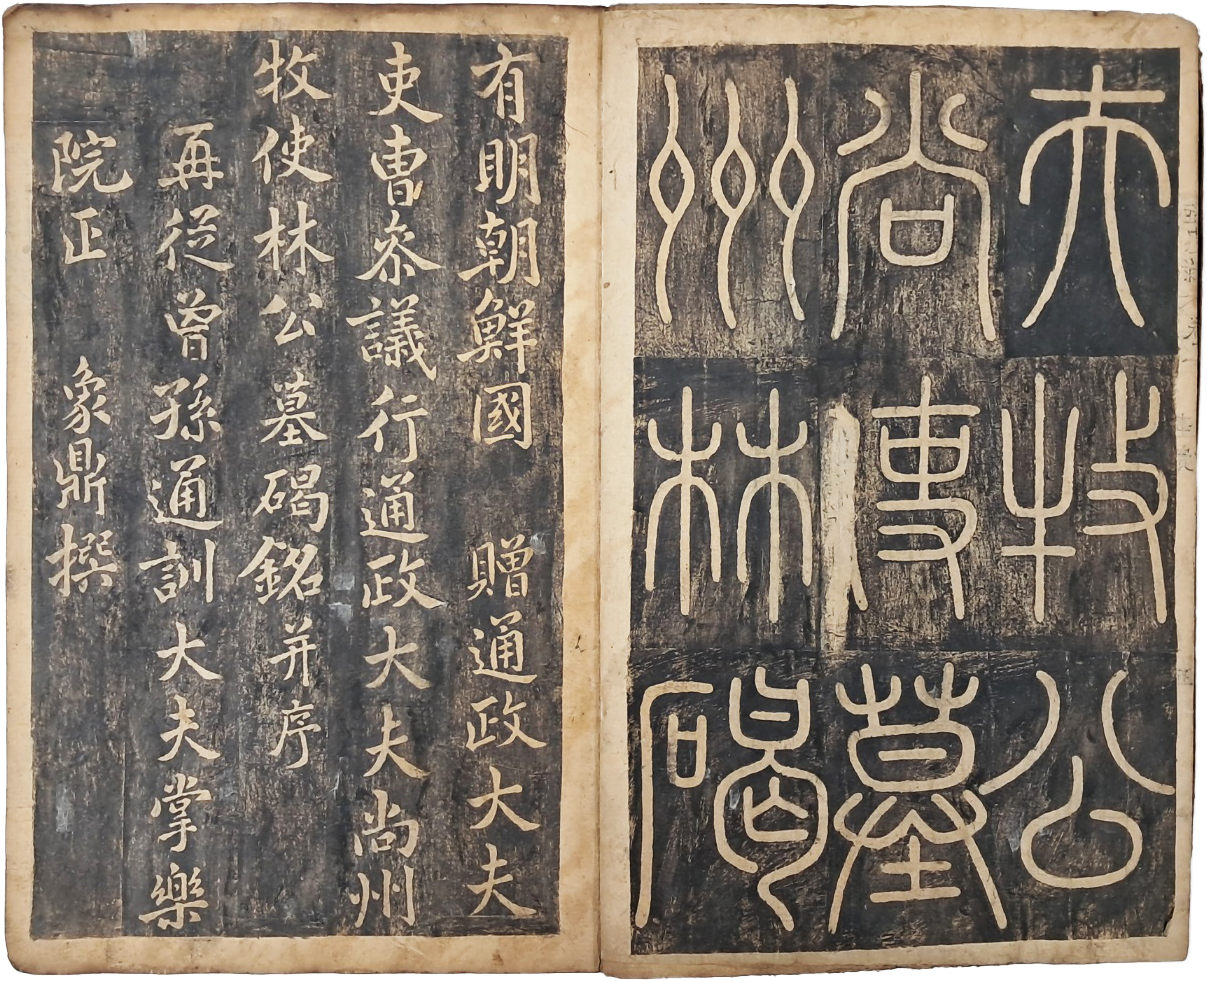 夫尚州
牧使林
公墓碣
有明朝鮮國 贈通政大夫
吏曹叅議行通政大夫尚州
牧使林公墓碣銘并序
再從曾孫通訓大夫掌樂
院正 象鼎撰